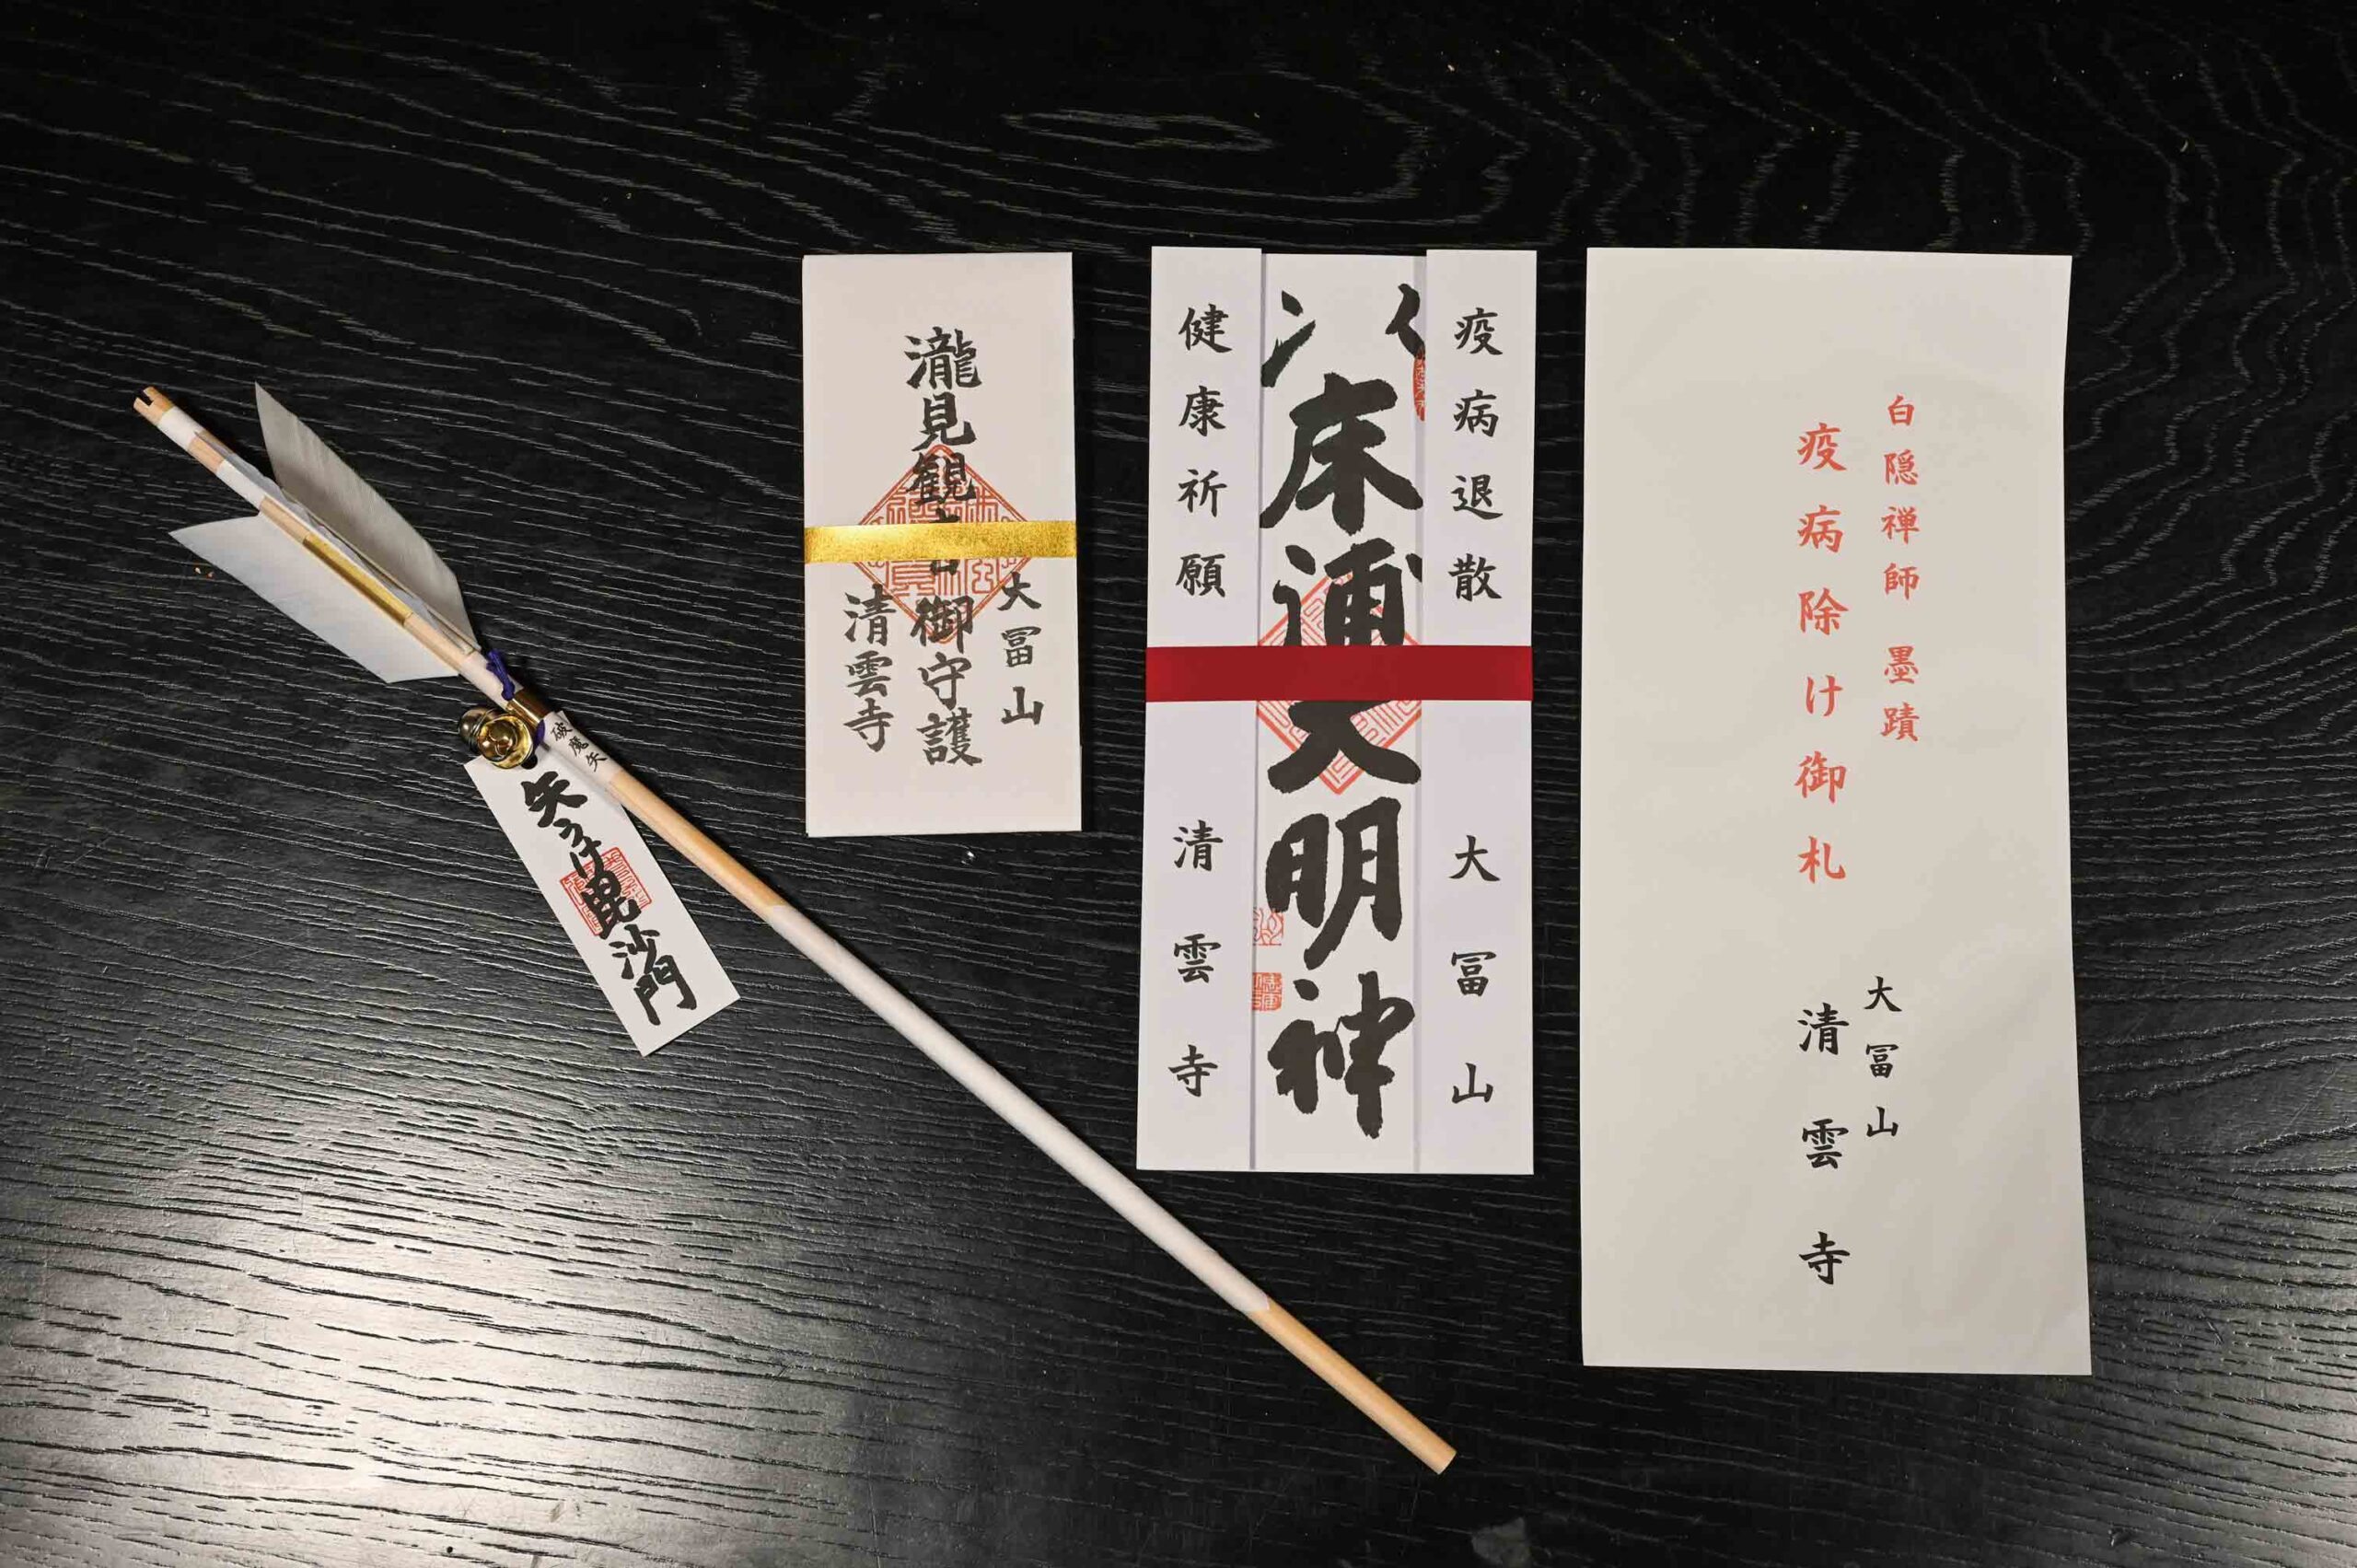 破魔矢
矢うけ毘沙門
大冨山
瀧見観音御守護
清雲寺
疫病退散 大冨山
床浦大明神
健康祈願 清雲寺
白隠禅師 墨蹟
疫病除け御札
大冨山
清雲寺